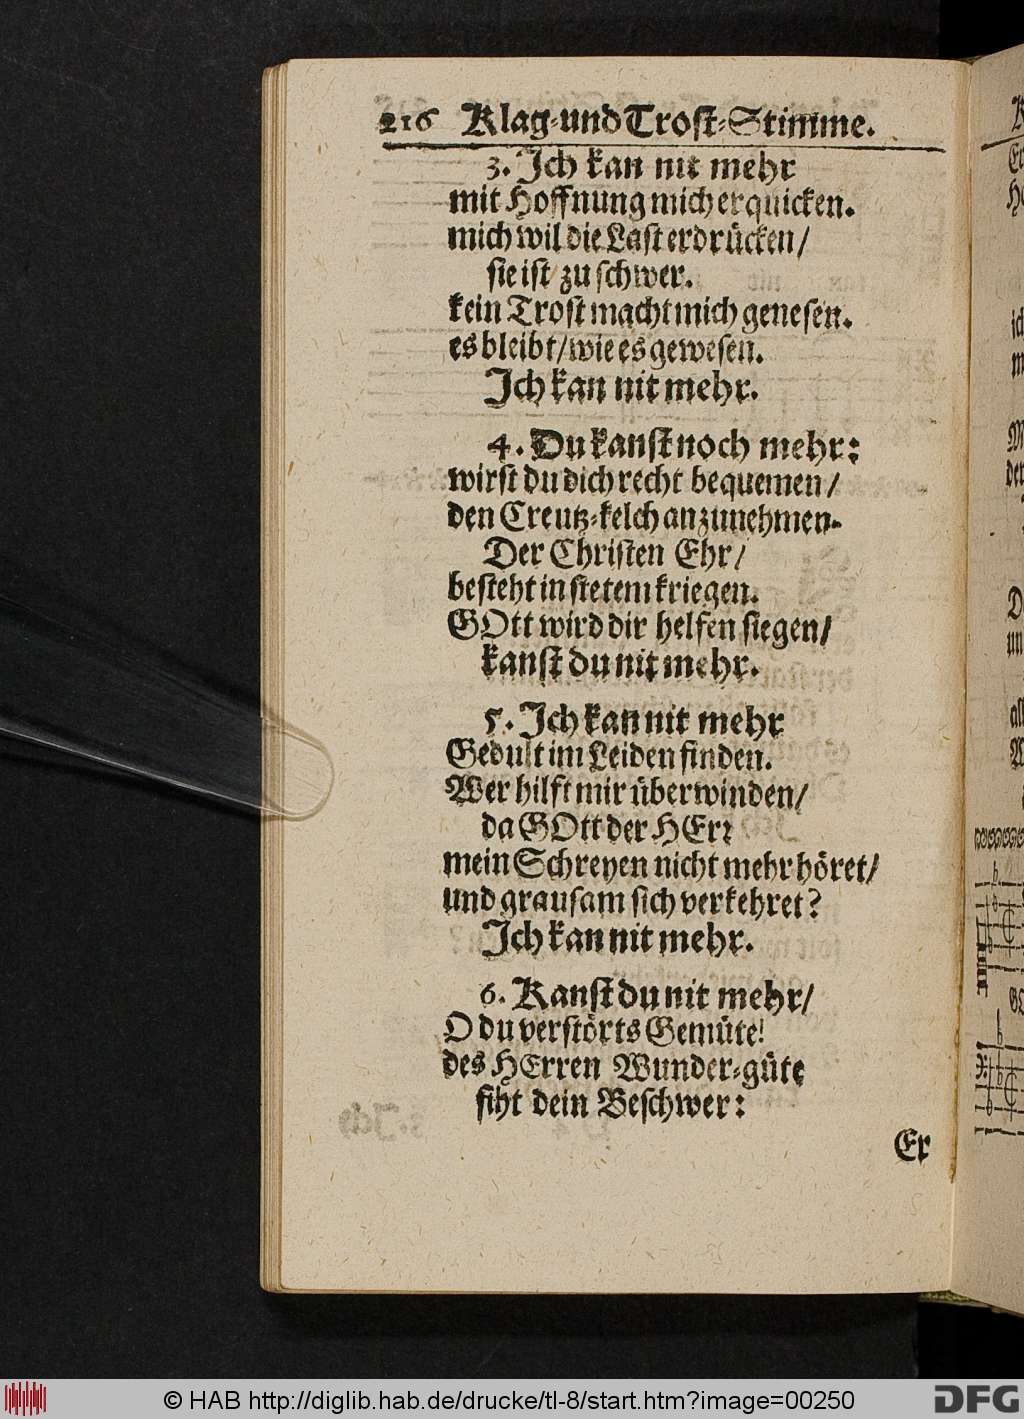 216 Klag-und Trost-Stimme.
3. Ich kan nit mehr
mit Hoffnung mich erquicken.
mich wil die Last erdrücken/
sie ist zu schwer.
kein Trost macht mich genesen.
es bleibt/wie es gewesen.
Ich kan nit mehr.
4. Du kanst noch mehr:
wirst du dich recht bequemen/
den Creutz-kelch anzunehmen.
Der Christen Ehr/
besteht in stetem kriegen.
GOtt wird dir helfen siegen/
kanst du nit mehr.
5. Ich kan nit mehr
Gedult im Leiden finden.
Wer hilft mir überwinden/
da GOtt der HErr
mein Schreyen nicht mehr höret/
und grausam sich verkehret?
Ich kan nit mehr.
6. Kanst du nit mehr/
O du verstörts Gemüte!
des HErren Wunder-güte
siht dein Beschwer:
Er
© HAB http://diglib.hab.de/drucke/tl-8/start.htm?image=00250
DFG